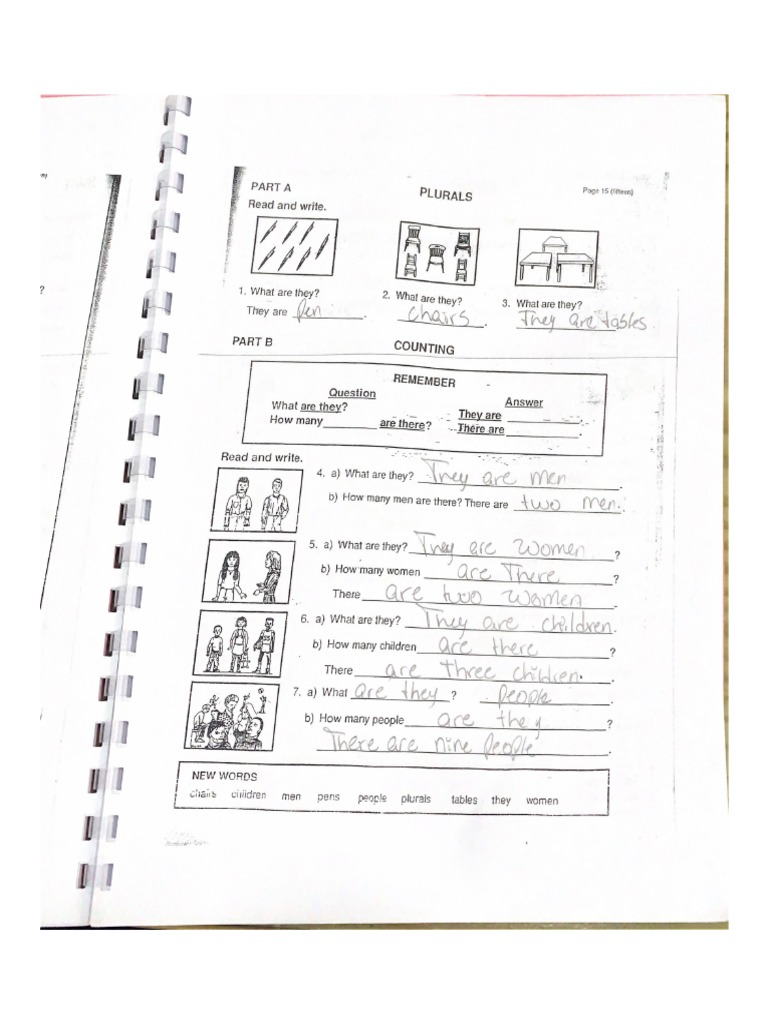 PART A
PLURALS
Page 15 (fifteen)
Read and write.
1. What are they?
They are pen.
2. What are they?
chairs.
3. What are they?
They are tables
PART B
COUNTING
REMEMBER
Question Answer
What are they? They are ________.
How many________ are there? There are ________.
Read and write.
4. a) What are they? They are men.
b) How many men are there? There are two men.
5. a) What are they? They are women?
b) How many women are There?
There are two women.
6. a) What are they? They are children.
b) How many children are there?
There are three children.
7. a) What are they? people.
b) How many people are they?
There are nine people.
NEW WORDS
chairs children men pens people plurals tables they women